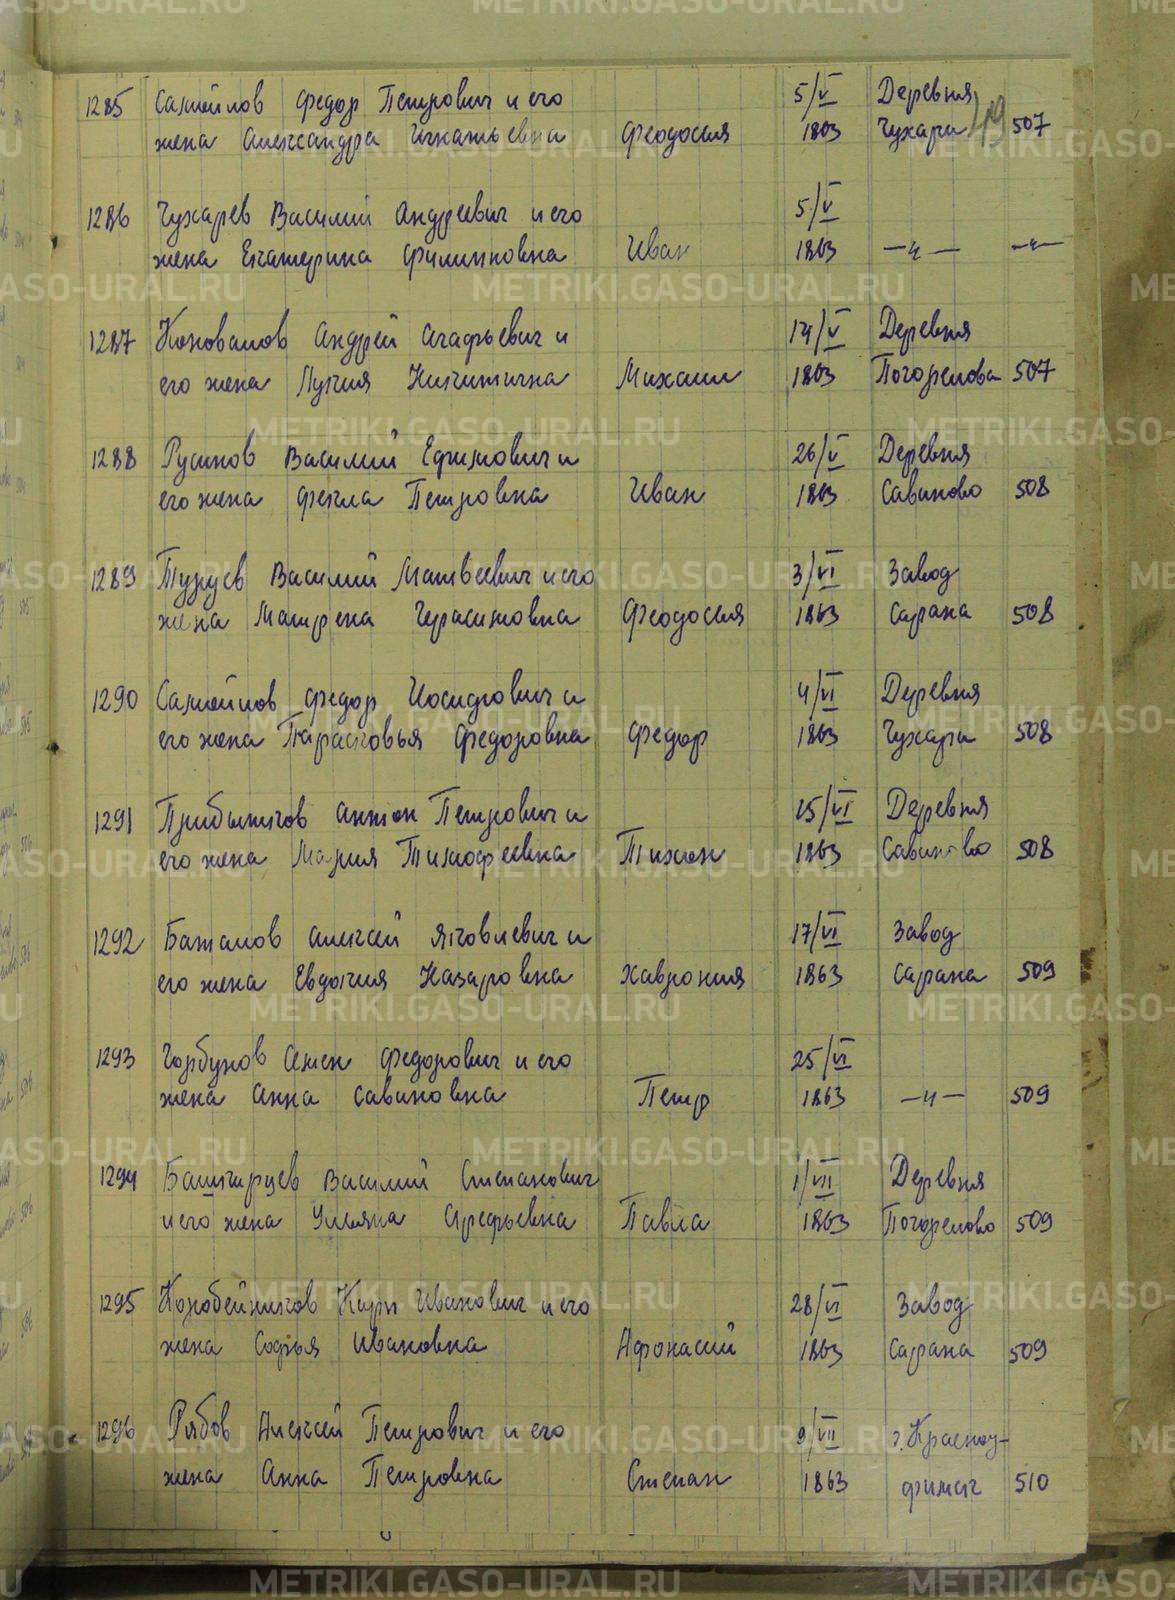 1285 Самойлов Федор Петрович и его 5/V Деревня
жена Александра Игнатьевна Феодосия 1863 Чухари 49 507
1286 Чухарев Василий Андреевич и его 5/V
жена Екатерина Филипповна Иван 1863 —"— —"—
1287 Коновалов Андрей Агафьевич и 14/V Деревня
его жена Лукия Никитична Михаил 1863 Погорелова 507
1288 Русинов Василий Ефимович и 26/V Деревня
его жена Фекла Петровна Иван 1863 Савиново 508
1289 Василий Матвеевич и его 3/VI Завод
жена Матрена Герасимовна Феодосия 1863 Сарана 508
1290 Самойлов Федор Иосифович и 4/VI Деревня
его жена Парасковья Федоровна Федор 1863 Чухари 508
1291 Прибытков Антон Петрович и 15/VI Деревня
его жена Мария Тимофеевна Тихон 1863 Савиново 508
1292 Баталов Алексей Яковлевич и 17/VI Завод
его жена Евдокия Назаровна Хаврония 1863 Сарана 509
1293 Горбунов Семен Федорович и его 25/VI
жена Анна Савиновна Петр 1863 —"— 509
1294 Башкирцев Василий Степанович 1/VII Деревня
и его жена Ульяна Арефьевна Павла 1863 Погорелово 509
1295 Коробейников Кирп Иванович и его 28/VI Завод
жена Софья Ивановна Афонасий 1863 Сарана 509
1296 Рябов Алексей Петрович и его 9/VII г. Красноу-
жена Анна Петровна Степан 1863 фимск 510
METRIKI.GASO-URAL.RU